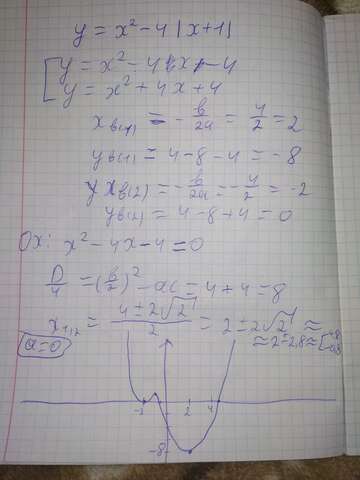 y = x² - 4|x+1|
y = x² - 4x - 4
y = x² + 4x + 4
x_в(1) = -в/2a = 4/2 = 2
y_в(1) = 4 - 8 - 4 = -8
x_в(2) = -в/2a = -4/2 = -2
y_в(2) = 4 - 8 + 4 = 0
OX: x² - 4x - 4 = 0
D/4 = (в/2)² - ac = 4 + 4 = 8
x₁,₂ = (4 ± 2√2)/2 = 2 ± 2√2 ≈
≈ 2 ± 2,8 ≈ [4,8
-0,8
a=0
2 4
-8